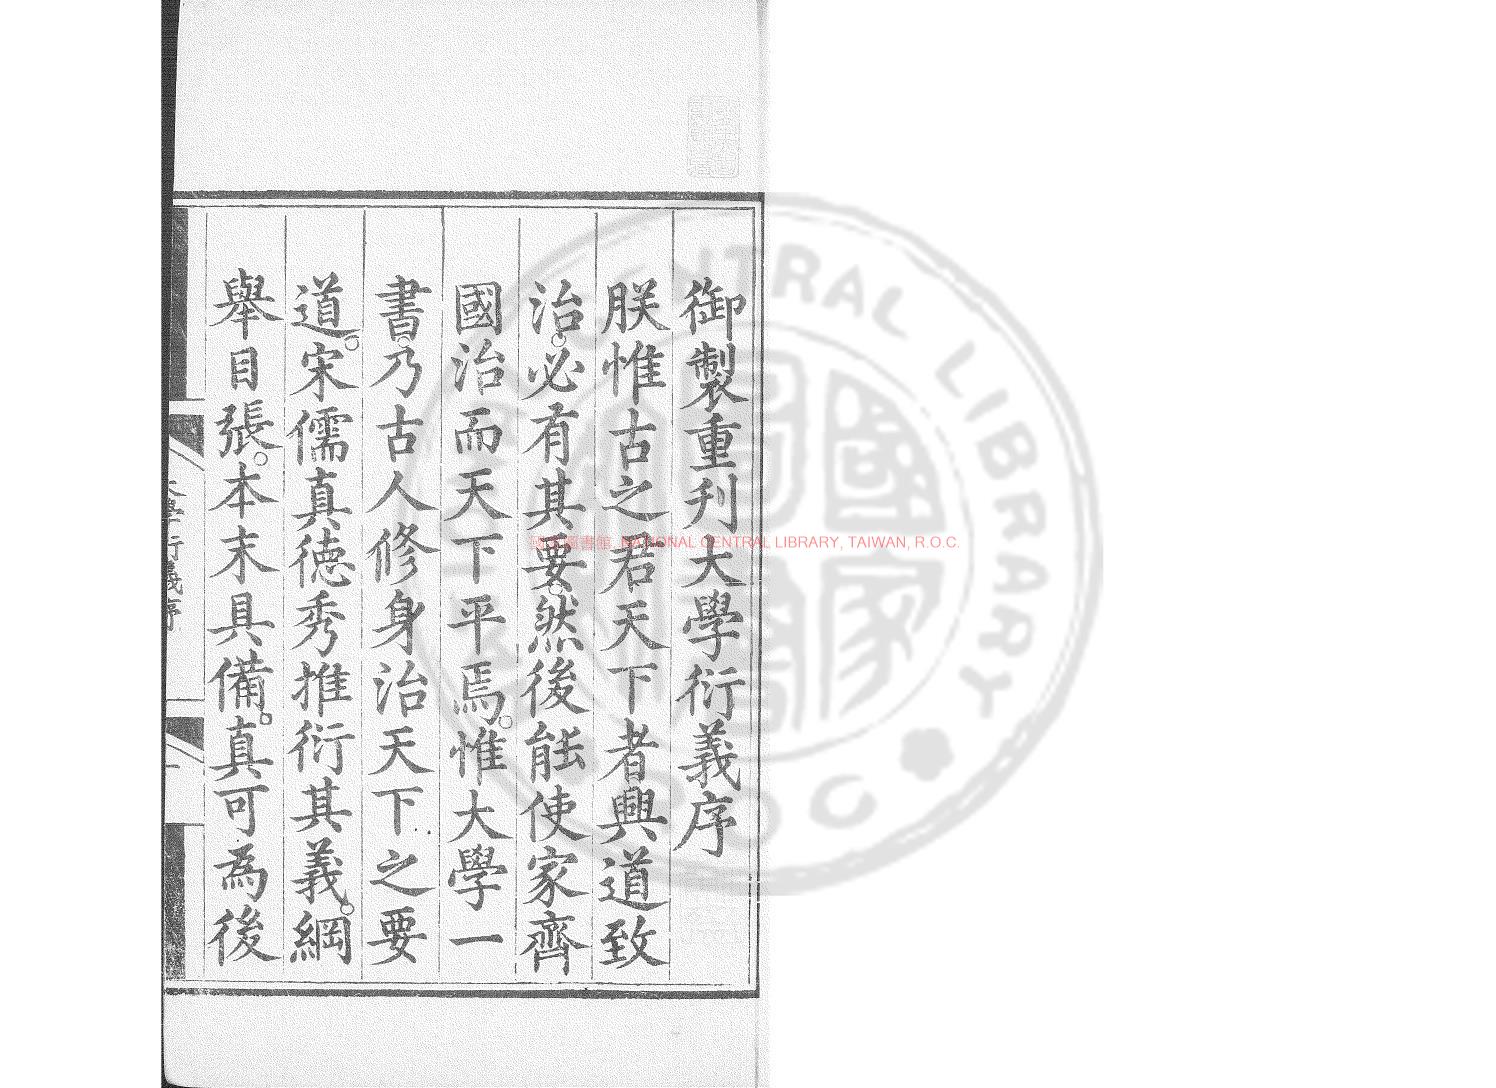 御製重刋大學衍義序
朕惟古之君天下者興道致
治。必有其要。然後能使家齊
國治而天下平焉。惟大學一
書。乃古人修身治天下之要
道。宋儒真德秀推衍其義。綱
舉目張。本末具備。真可為後
國家圖書館 NATIONAL CENTRAL LIBRARY, TAIWAN, R.O.C.